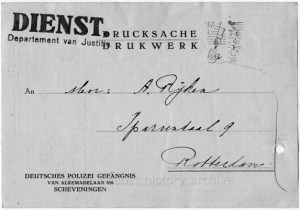 DIENST.
Departement van Justitie
DRUCKSACHE
DRUKWERK
An Mevr: A. Rijken
Sparrendaal 9
Rotterdam
DEUTSCHES POLIZEI GEFÄNGNIS
VAN ALKEMADELAAN
SCHEVENINGEN
history archive